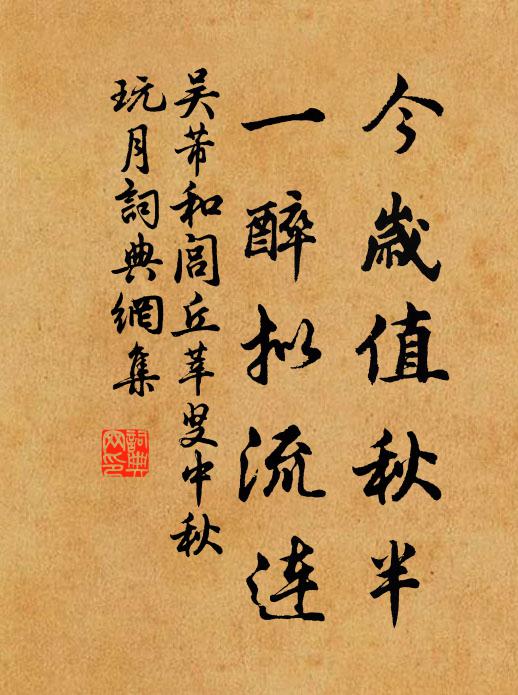 今歲值秋半
一醉拟流連
吴芾和閭丘莘叟中秋
玩月詞典網集
詞典
网印